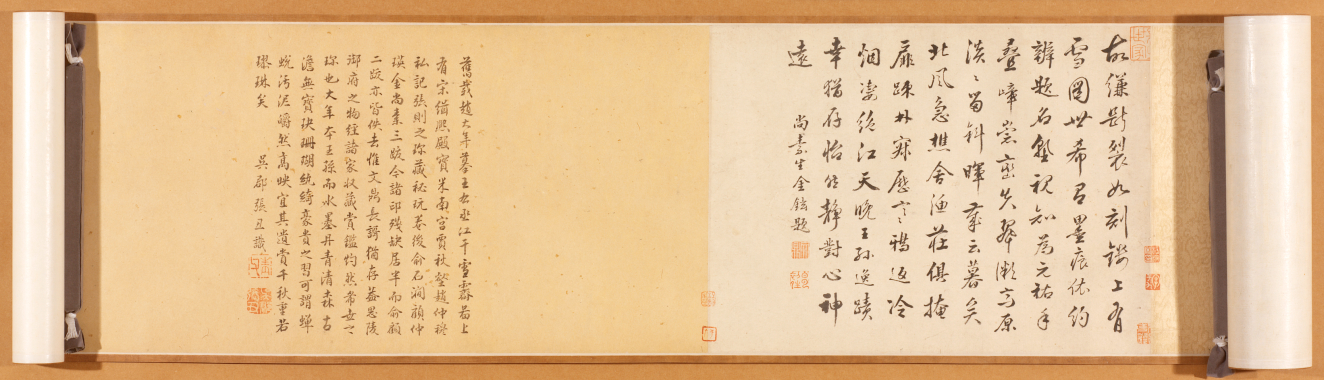 故縑斷裂如刻鏤上有
雪圖世希有墨痕依約
辨題名熟視知為元祐手
疊嶂崇巒失翠微高原
淡淡留斜暉寒云暮矣
北風急樵舍漁莊俱掩
扉踈林寂歷鴉返冷
烟凄絕江天晚王孫逸蹟
幸猶存怡然靜對心神
遠
尚素生金鉉題
舊藏趙大年摹王右丞江干雪霽圖上
有宋緝熙殿寶米南宮賈秋壑趙仲穆
私記張則之珍藏秘玩卷後俞石澗顧仲
瑛金尚素三跋今諸印殘缺居半而俞顧
二跋亦皆佚去惟文鼎長謌猶存蓋思陵
御府之物經諸家收藏賞鑑灼然希世之
珍也大年本王孫而水墨丹青清森古
澹無寶玦珊瑚紈綺豪貴之習可謂蟬
蛻汙泥皭然高映宜其遺賞千秋重若
璆珠矣
吳郡張丑識